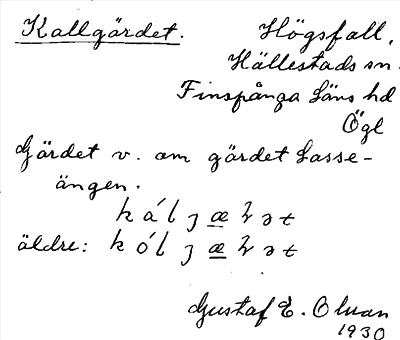 Kallgärdet.
Högsfall,
Hällestads sn.
Finspånga Läns hd
Ögl
Gärdet v. om gärdet Lasse-
ängen.
äldre:
Gustaf E. Olvan
1930